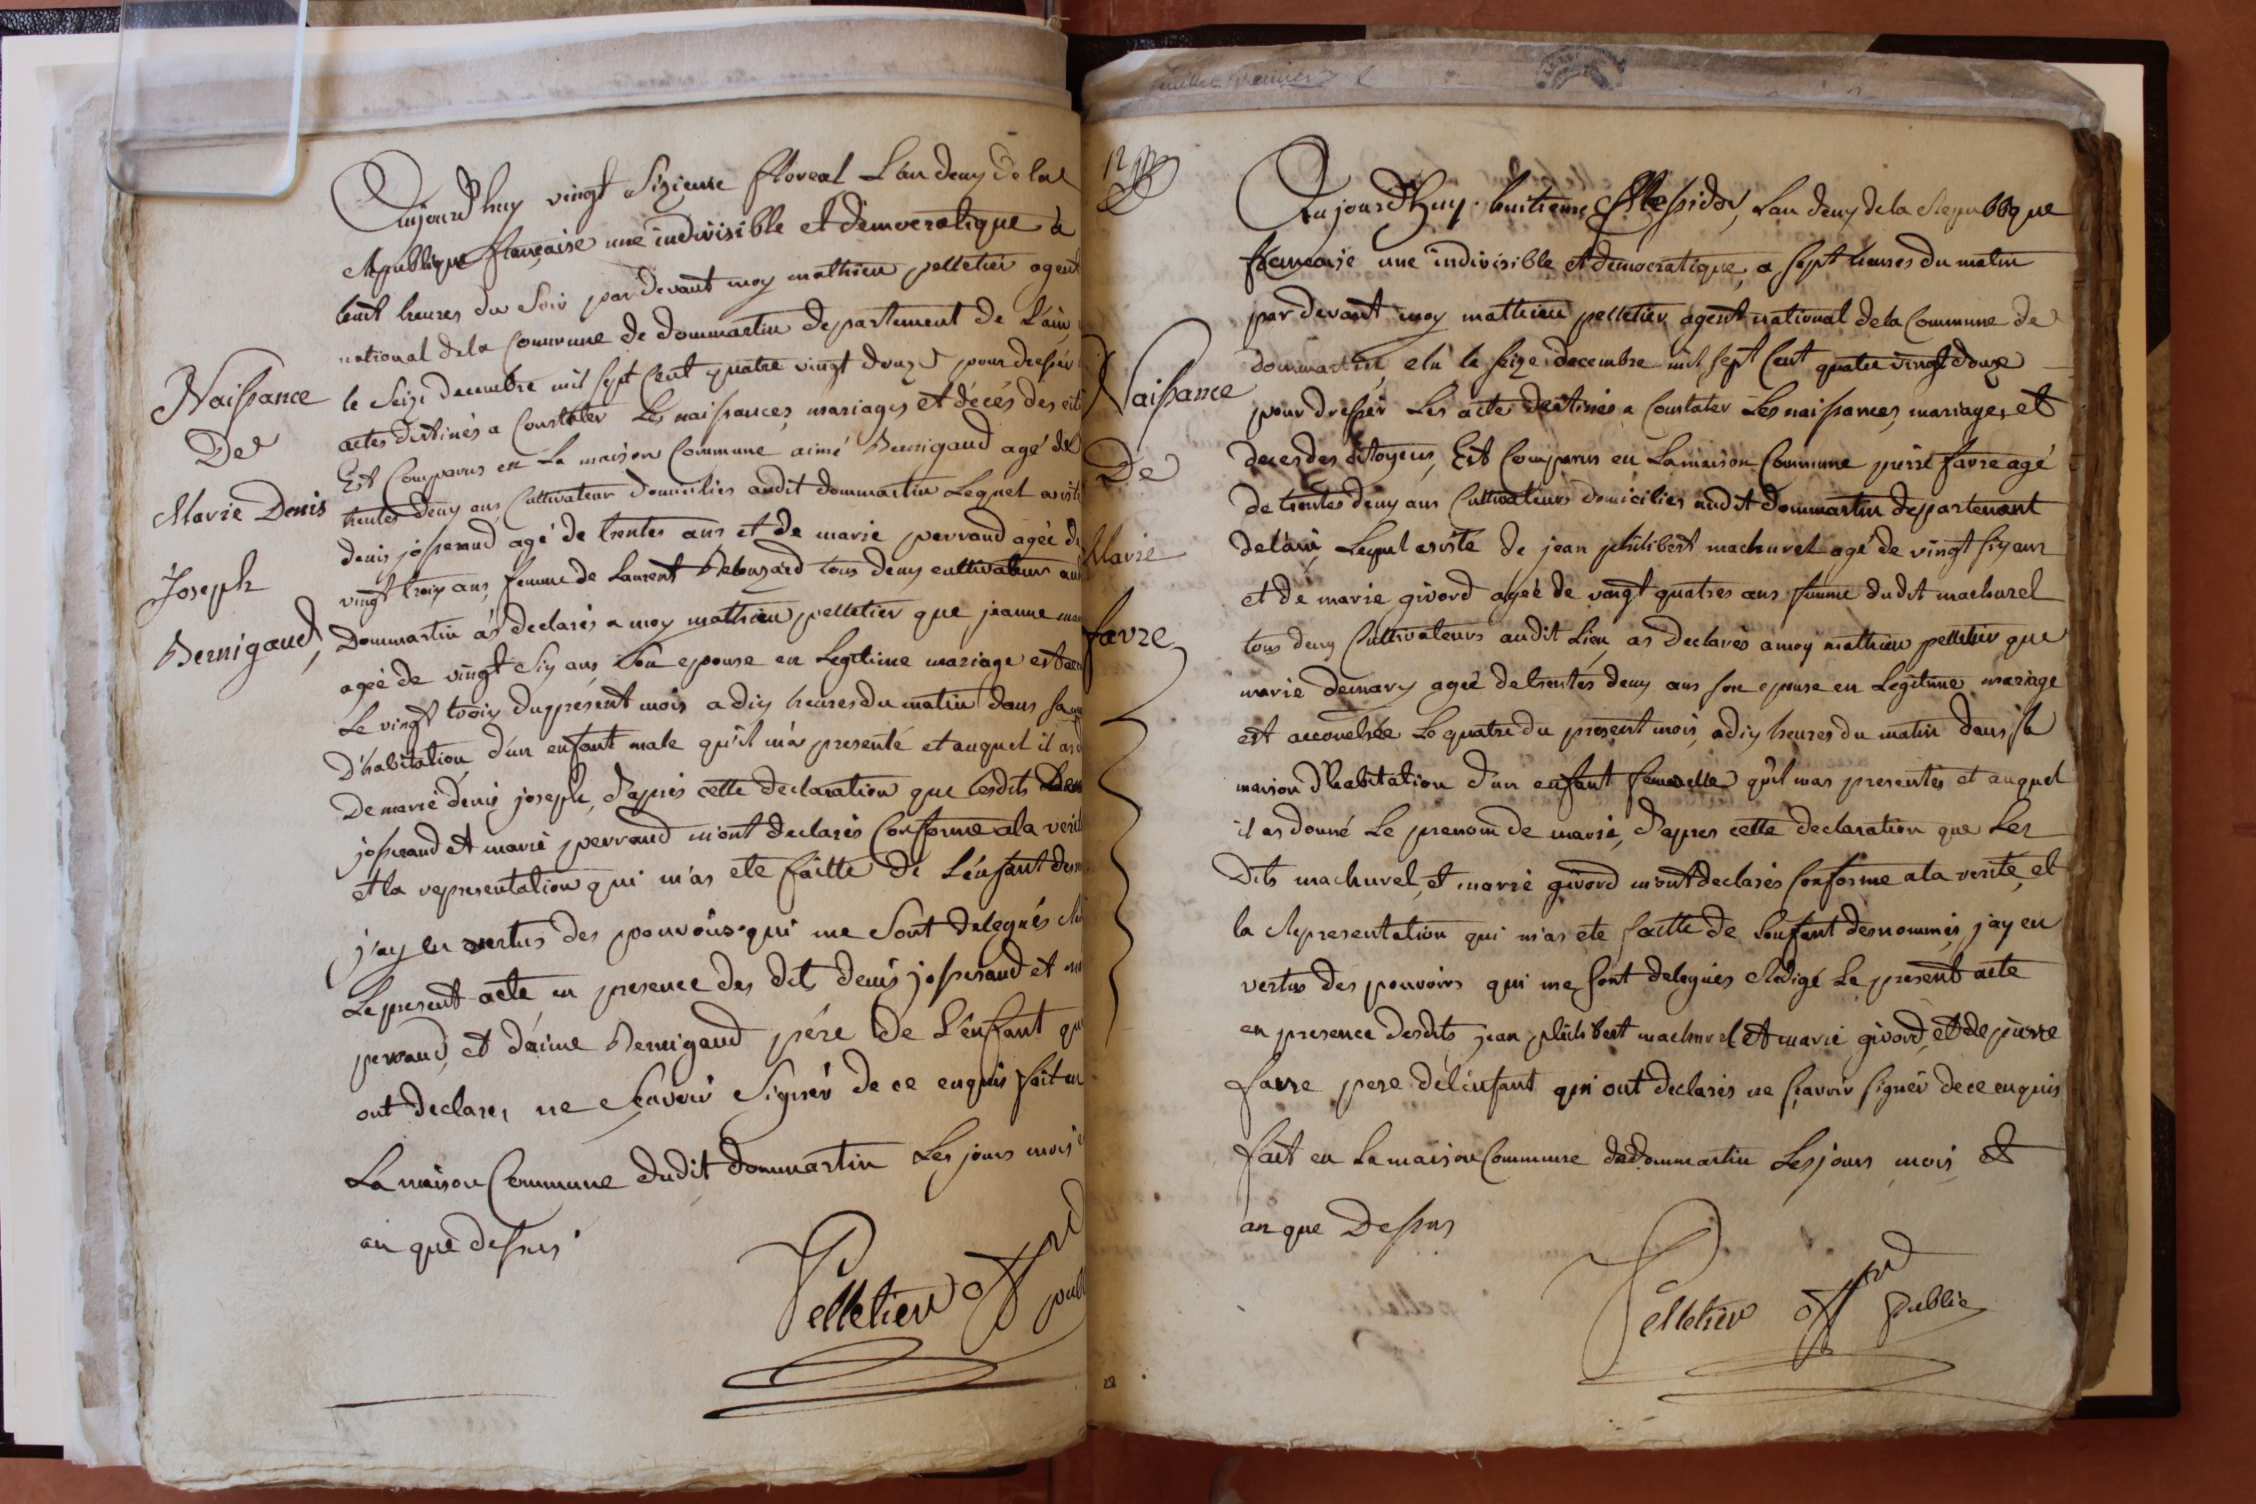 Aujourd'huy vingt Sixieme floreal L'an deux de la
Republique française une indivisible et democratique a
huit heures du Soir par devant moy mathieu pelletier agent
national de la Commune de dommartin departement de L'ain
le Seize decembre mil sept Cent quatre vingt douze pour dresser
actes destinés a Constater Les naissances, mariages et décés des
Est Comparus en La maison Commune aimé Bernigaud agé de
trentes deux ans Cultivateur domicilies audit dommartin Lequel
denis josserand agé de trentes ans et de marie perraud agée
vingt trois ans, femme de Laurent tous deux cultivateurs
Dommartin as declarés a moy mathieu pelletier que jeanne
agée de vingt Six ans Son epouse en Legitime mariage est
Le vingt trois du présent mois a dix heures du matin dans sa
D'habitation d'un enfant male qu'il m'a presenté et auquel il
De marie denis joseph, d'après cette declaration que lesdits
josserand et marie perraud m'ont declarés Conforme a la
et la representation qui m'as eté faitte de L'enfant
j'ay en vertus des pouvoirs qui me Sont delegués
Le present acte en presence des dits denis josserand et
perraud, et d'aimé Bernigaud père de L'enfant
ont declarés ne Sçavoir Signér de ce enquis fait en
La maison Commune dudit dommartin Les jours mois
an que dessus
Pelletier off
Naissance
De
Marie Denis
Joseph
Bernigaud,
12
Aujourd'Huy huitieme Messidor, L'an deux de la Republique
française une indivisible et democratique, a sept heures du matin
par devant moy mathieu pelletier agent national de la Commune de
dommartin elu le seize decembre mil sept Cent quatre vingt douze
pour dresser Les acte destinés a Constater Les naissances, mariages, et
deces des Citoyens, Est Comparus en La maison Commune pierre favre agé
de trentes deux ans Cultivateurs domicilies audit dommartin departemant
de l'ain, Lequel asisté de jean philibert machurel agé de vingt six ans
et de marie givord agée de vingt quatres ans femme dudit machurel
tous deux Cultivateurs audit Lieu, as declarés a moy mathieu pelletier que
marie agée de trentes deux ans son epouse en Legitime mariage
est accouchée Le quatre du present mois, a dix heures du matin dans sa
maison d'habitation d'un enfant femelle qu'il mas presentés et auquel
il as donné Le prenom de marie, d'apres cette declaration que Les
dits machurel, et marie givord m'ont declarés Conforme a la verité, et
la Representation qui m'as ete faitte de L'enfant denommés, j'ay en
vertus des pouvoirs qui me sont delegués Redigé Le present acte
en presence desdits jean philibert machurel et marie givord, et de pierre
favre pere de l'enfant qui ont declarés ne sçavoir signér de ce enquis
fait en La maison Commune de dommartin Les jours mois et
an que Dessus
Pelletier off public
Naissance
De
Marie
favre